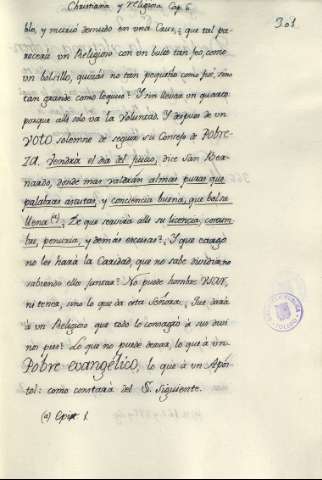 Christiana y religiosa Cap. 6
301
blo, y murió desnudo en una Cruz, que tal pa-
recerá un Religioso con un bulto tan feo, como
un bolsillo, quizás no tan pequeño como feo, sino
tan grande como loquisso? Y sin llevar un quarto
porque alli solo va la Voluntad. Y despues de un
VOTO solemne de seguir su Consejo de Pobre-
ZA. Vendrá el dia del juicio, dice San Ber-
nardo, donde mas valdrán almas puras que
palabras astutas, y conciencia buena, que bolsa
llena (a). De que servirá alli su licencia, costum-
bre, penuria, y demás escusas? Y que cargo
no les hará la Caridad, que no sabe dividirse
sabiendo ella juntar? No puede hombre usar,
ni tener, sino lo que da esta Señora. Que dará
à un Religioso que todo lo consagró à sus divi-
nos pies? Lo que no puede dexar, lo que à un
Pobre evangélico, lo que à un Após-
tol: como constará del §. Siguiente.
(a) Epist. 1.
TOLEDO